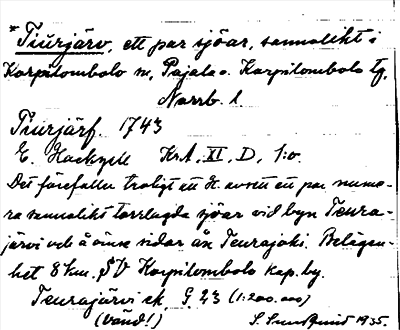 *Tiurjärv, ett par sjöar, sannolikt i
Karpilombolo sn, Pajala o. Korpilombolo tg,
Norrb. l.
Tiurjärf. 1743
E. Hackzell Krt. XI, D, 1:o.
Det förefaller troligt att avse ett par numera
ra sannolikt torrlagda sjöar vid byn Teura-
järvi och å ömse sidor ån Teurajoki. Belägen-
het 8 km. SV Korpilombolo kap.by.
Teurajärvi ek. G. 23 (1:200.000)
(Vänd!) S. 1935.